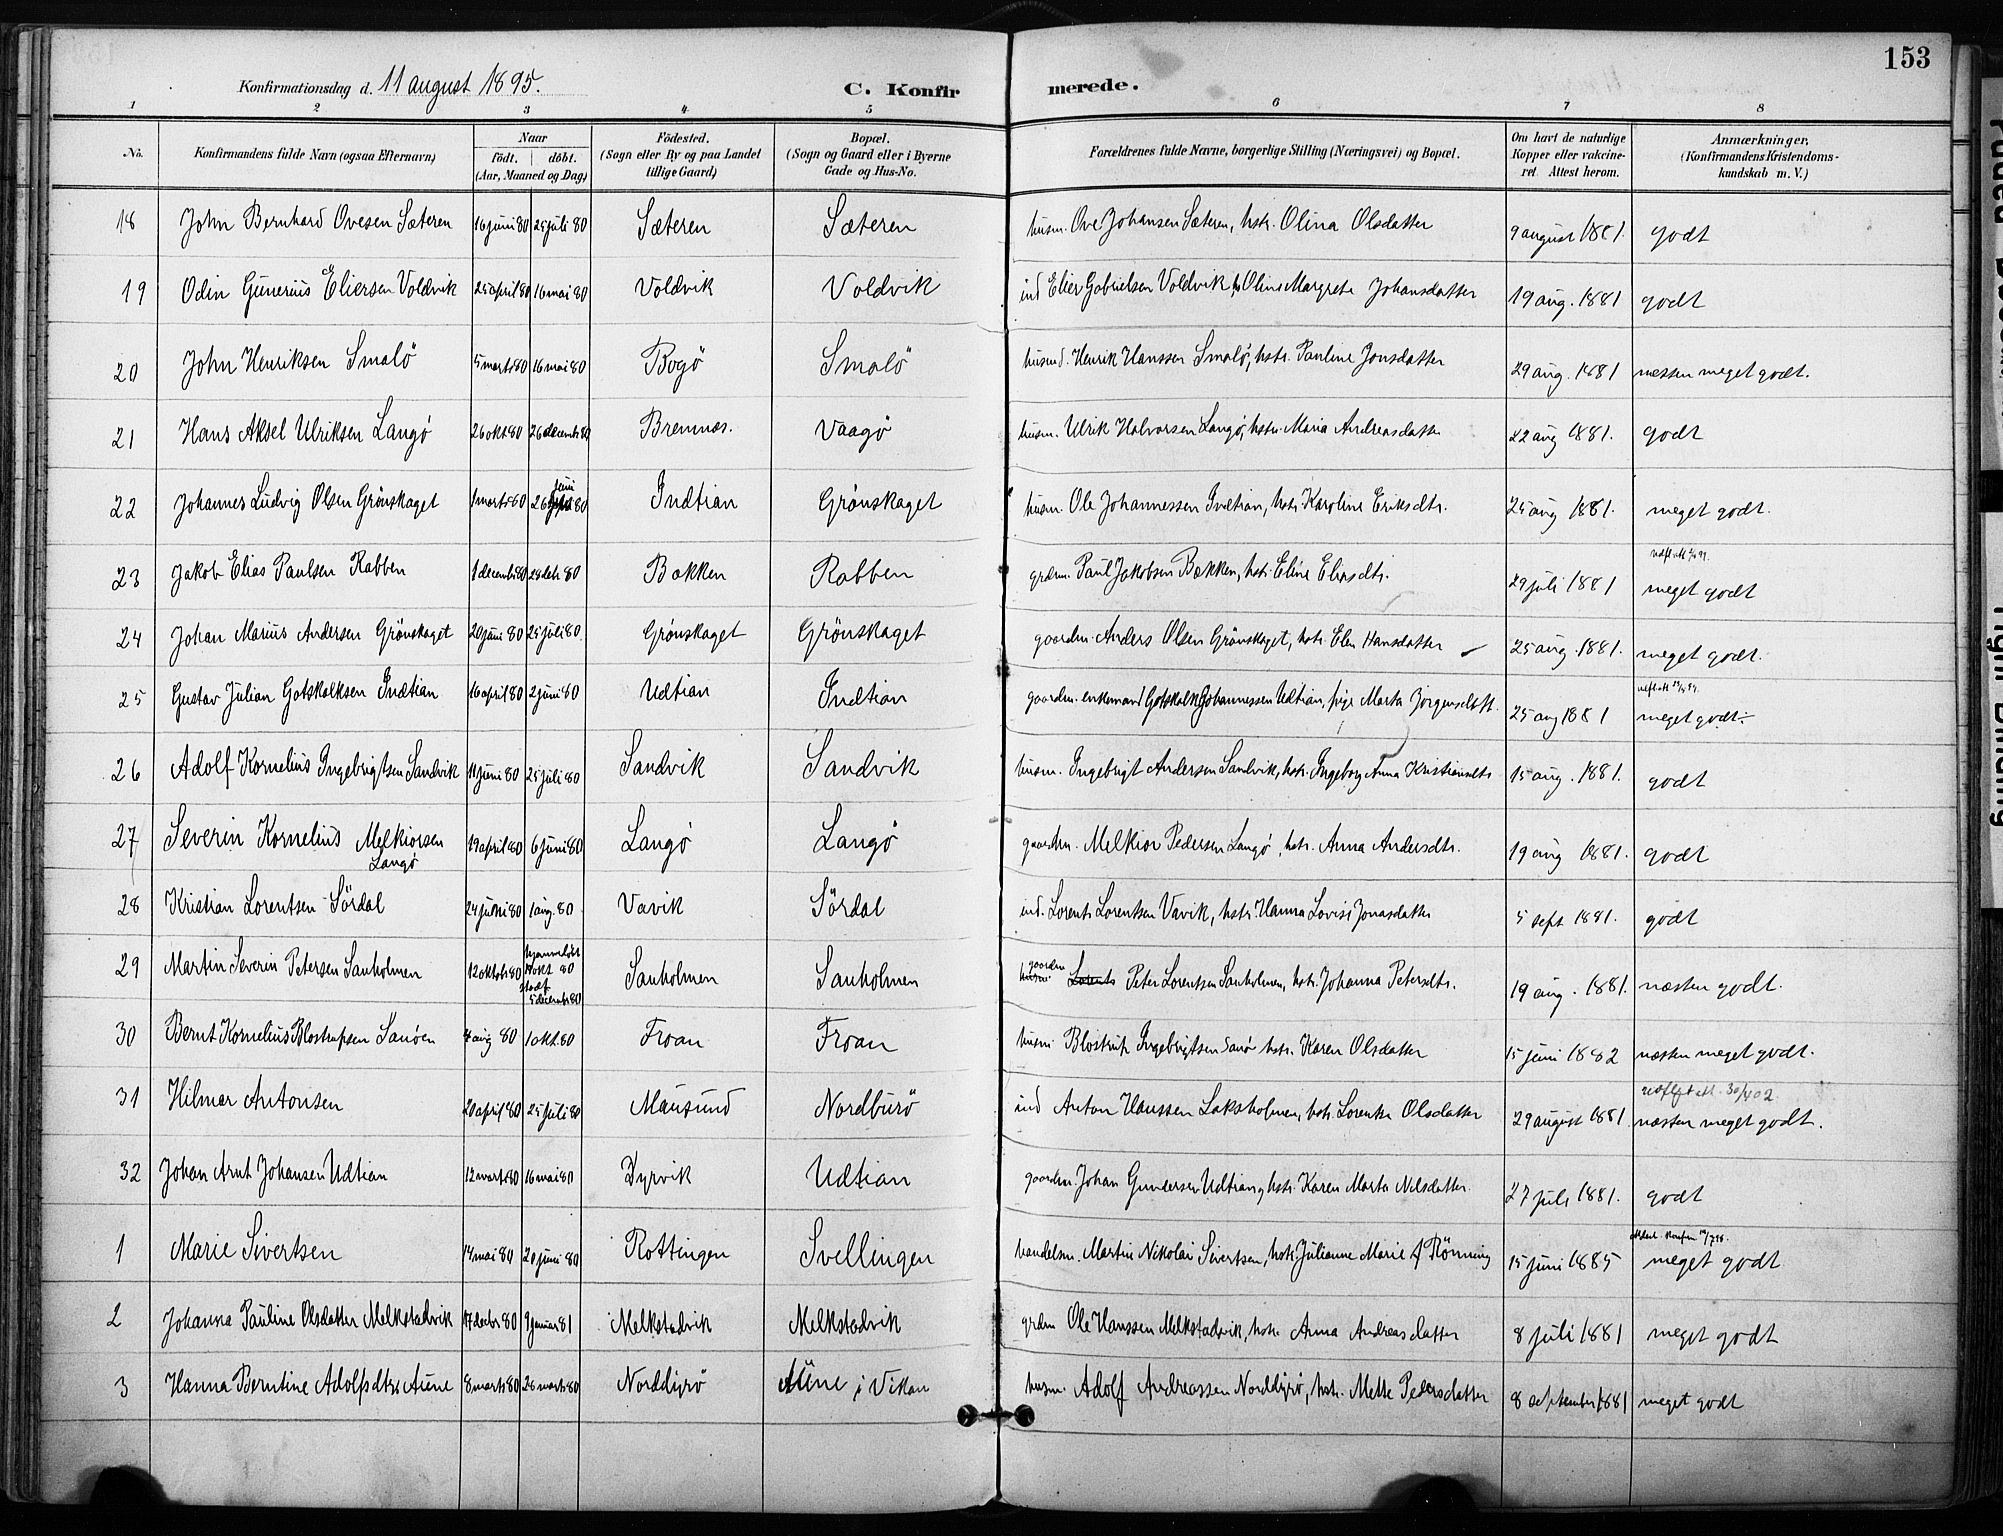 153
Konfirmationsdag d. 11 august 1895.
C. Konfirmerede.
1 2 3 4 5 6 7 8
No. Konfirmandens fulde Navn (ogsaa Efternavn) Naar födt. döbt. (Aar, Maaned og Dag) Födested. (Sogn eller By og paa Landet tillige Gaard) Bopæl. (Sogn og Gaard eller i Byerne Gade og Hus-No. Forældrenes fulde Navne, borgerlige Stilling (Næringsvei) og Bopæl. Om havt de naturlige Kopper eller vakcineret. Attest herom. Anmærkninger, (Konfirmandens Kristendomskundskab m. V.)
18 John Bernhard Ovesen Sæteren 16 juni 80 25 juli 80 Sæteren Sæteren husm. Ove Johansen Sæteren, hstr. Olina Olsdatter 9 august 1881. godt
19 Odin Gunerius Eliersen Voldvik 25 april 80 16 mai 80 Voldvik Voldvik ind Elier Gabrielsen Voldvik, Olina Margrete Johansdatter 19 aug. 1881 godt
20 John Henriksen Smalö 5 marts 80 16 mai 80 Bogö Smalö husmd. Henrik Hanssen Smalö, hstr. Pauline Jonsdatter 29 aug. 1881 næsten meget godt.
21 Hans Aksel Ulriksen Langö 26 okt. 80 26 decemb 80 Bremnæs. Vaagö husm. Ulrik Halvorsen Langö, hstr. Maria Andreasdatter 22 aug 1881. godt
22 Johannes Ludvig Olsen Grönskaget 1 marts 80 26 juni 80 Indtian Grönskaget husm. Ole Johannessen Indtian, hstr. Karoline Eriksdtr. 25 aug 1881. meget godt.
23 Jakob Elias Paulsen Rabben 1 decemb 80 28 deb 80 Bakken Rabben grdm. Paul Jakobsen Bakken, hstr. Eline Eliasdtr. 29 juli 1881 meget godt
24 Johan Marius Andersen Grönskaget 20 juni 80 25 juli 80. Grönskaget Grönskaget gaardm. Anders Olsen Grönskaget, hstr. Elen Hansdatter 25 aug. 1881. meget godt.
25 Gustav Julian Gotskalksen Indtian 16 april 80 2 juni 80 Udtian Indtian gaardm. enkemand Gotskalk Johannessen Udtian, pige Marta Jörgensdatt. 25 aug 1881 meget godt.
26 Adolf Kornelius Ingebrigtsen Sandvik 11 juni 80 25 juli 80 Sandvik Sandvik husm. Ingebrigt Andersen Sandvik, hstr. Ingeborg Anna Kristiansdtr 15 aug. 1881. godt
27 Severin Kornelius Melkiorsen Langö 19 april 80 6 juni 80 Langö Langö gaardm. Melkior Pedersen Langö, hstr. Anna Andersdtr. 19 aug 1881. godt
28 Kristian Lorentsen Sördal 24 juni 80 1 aug. 80 Vavik Sördal ind. Lorents Lorentsen Vavik, hstr. Hanna Lovise Jonasdatter 5 sept 1881. godt
29 Martin Severin Petersen Sanholmen 12 oktob 80 hjemmedöbt okt 80 stadf 5 decemb 80 Sanholmen Sanholmen gaardm Peter Lorentsen Sanholmen, hstr. Johanna Petersdtr. 19 aug. 1881. næsten godt.
30 Bernt Kornelius Blostrupsen Sanöen 7 aug 80 1 okt. 80 Froan Froan husm Blostrup Ingebrigtsen Sanö hstr. Karen Olsdatter 15 juni 1882 næsten meget godt.
31 Hilmar Antonsen 20 april 80 25 juli 80 Mausund Nordburö ind Anton Hanssen Laksholmen, hstr. Lorentse Olsdatter 29 august 1881 næsten meget godt.
32 Johan Arnt Johansen Udtian 12 marts 80 16 mai 80 Dyrvik Udtian gaardm. Johan Gundersen Udtian, hstr. Karen Marta Nilsdatter 27 juli 1881. godt
1 Marie Sivertsen 14 mai 80 20 juni 80 Rottingen Svellingen handelsm. Martin Nikolai Sivertsen, hstr. Julianne Marie f Rönning 15 juni 1885 meget godt
2 Johanna Pauline Olsdatter Melkstadvik 17 decbr 80 9 januar 81 Melkstadvik Melkstadvik grdm Ole Hanssen Melkstadvik, hstr. Anna Andreasdatter 8 juli 1881 meget godt
3 Hanna Berntine Adolfsdtr. Aune 8 marts 80 28 marts 80 Norddyrö Aune i Vikan husm. Adolf Andreassen Norddyrö, hstr. Mette Pedersdatter 8 september 1881 meget godt